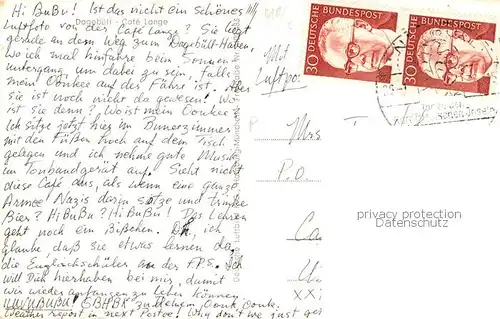 Dagebüll - Café Lange
Hi BuBu! Ist das nicht ein schönes
Luftfoto von der Café Lange? Sie liegt
gerade an dem Weg zum Dagebüll-Hafen,
Wo ich mal hinfahre beim Sonnen
untergang, um dabei zu sein, falls
mein Oonkee auf der Fähre ist. Aber
sie ist noch nicht da gewesen! Wo
ist sie denn? Wo ist mein Oonkee
Ich sitze jetzt hier im Dunerzimmer
mit den Füßen hoch auf dem Tisch
gelegen und ich nehme gute Musik
im Tonbandgerät auf. Sieht nicht
diese Café aus, als wenn eine ganze
Armee Nazis darin sitze und trinke
Bier? HiBuBu? HiBuBu! Das Lehren
geht noch ein Bißchen. Oh, ich
glaube, daß sie etwas lernen da,
die Englischschüler an der P.P.S. Ich
will Dich hierhaben bei mir, damit
wir wieder anfangen zu leben können
Weather report in next Postoe! Why don't we just get
Mit
Luftpost
30 DEUTSCHE BUNDESPOST
30 DEUTSCHE BUNDESPOST
Mrs T
P.O.
Ca
U
XX
privacy protection
Datenschutz